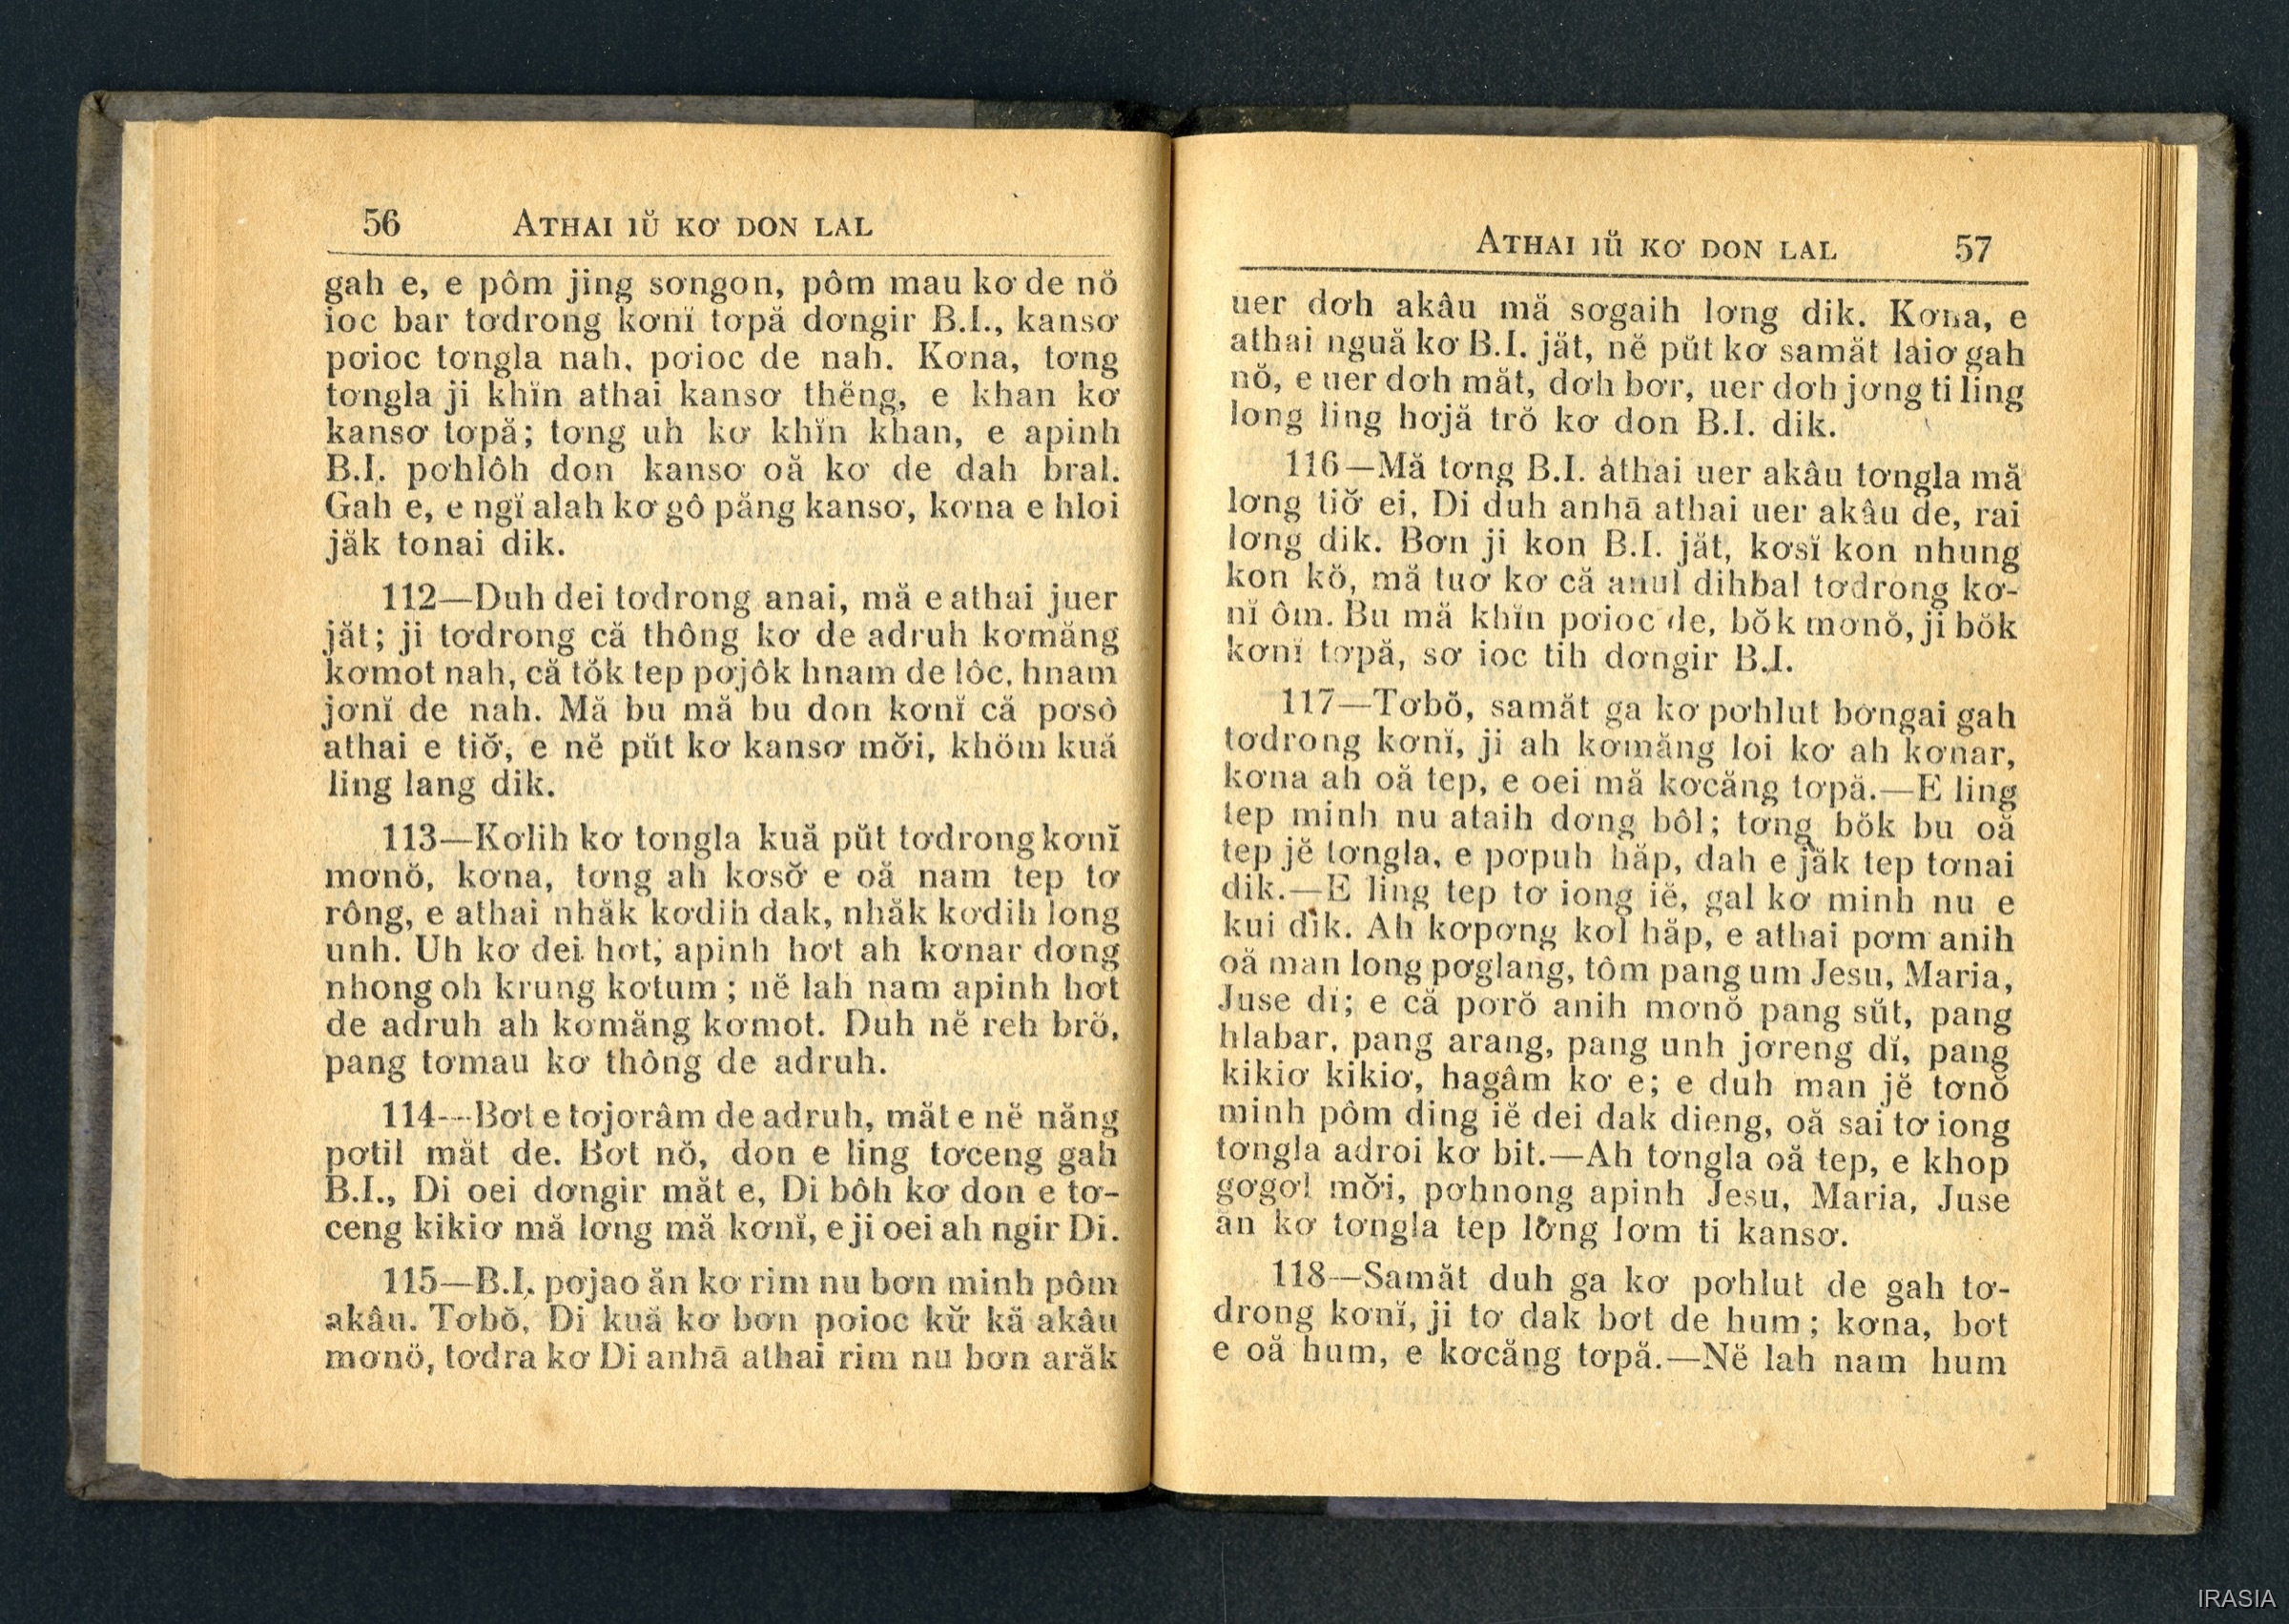 56 ATHAI IŬ KƠ DON LAL
gah e, e pôm jing sơngon, pôm mau kơ de nŏ
ioc bar tơdrong kơnĭ tơpă dơngir B.I., kansơ
pơioc tơngla nah, pơioc de nah. Kơna, tơng
tơngla ji khĭn athai kansơ thĕng, e khan kơ
kansơ tơpă; tơng uh kơ khĭn khan, e apinh
B.I. pơhlôh don kansơ oă kơ de dah bral.
Gah e, e ngĭ alah kơ gô păng kansơ, kơna e hloi
jăk tonai dik.
112—Duh dei tơdrong anai, mă e athai juer
jăt; ji tơdrong că thông kơ de adruh kơmăng
kơmot nah, că tŏk tep pơjôk hnam de lôc, hnam
jơnĭ de nah. Mă bu mă bu don kơnĭ că pơsò
athai e tiơ̆, e nĕ pŭt kơ kansơ mơ̆i, khŏm kuă
ling lang dik.
113—Kơlih kơ tơngla kuă pŭt tơdrong kơnĭ
mơnŏ, kơna, tơng ah kơsơ̆ e oă nam tep tơ
rông, e athai nhăk kơdih dak, nhăk kơdih long
unh. Uh kơ dei hơt, apinh hơt ah kơnar dơng
nhong oh krung kơtum ; nĕ lah nam apinh hơt
de adruh ah kơmăng kơmot. Duh nĕ reh brŏ,
pang tơmau kơ thông de adruh.
114—Bơt e tơjơrâm de adruh, măt e nĕ năng
pơtil măt de. Bơt nŏ, don e ling tơceng gah
B.I., Di oei dơngir măt e, Di bôh kơ don e tơ-
ceng kikiơ mă lơng mă kơnĭ, e ji oei ah ngir Di.
115—B.I. pơjao ăn kơ rim nu bơn minh pôm
akâu. Tơbŏ, Di kuă kơ bơn pơioc kư̆ kă akâu
mơnŏ, tơdra kơ Di anhā athai rim nu bơn arăk
ATHAI IŬ KƠ DON LAL 57
uer dơh akâu mă sơgaih lơng dik. Kơna, e
athai nguă kơ B.I. jăt, nĕ pŭt kơ samăt laiơ gah
nŏ, e uer dơh măt, dơh bơr, uer dơh jơng ti ling
long ling hơjă trŏ kơ don B.I. dik.
116—Mă tơng B.I. athai uer akâu tơngla mă
lơng tiơ̆ ei, Di duh anhā athai uer akâu de, rai
lơng dik. Bơn ji kon B.I. jăt, kơsĭ kon nhung
kon kŏ, mă tuơ kơ că anul dihbal tơdrong kơ-
nĭ ôm. Bu mă khĭn pơioc de, bŏk mơnŏ, ji bŏk
kơnĭ tơpă, sơ ioc tih dơngir B.I.
117—Tơbŏ, samăt ga kơ pơhlut bơngai gah
tơdrong kơnĭ, ji ah kơmăng loi kơ ah kơnar,
kơna ah oă tep, e oei mă kơcăng tơpă.—E ling
tep minh nu ataih dơng bôl; tơng bŏk bu oă
tep jĕ tơngla, e pơpuh hăp, dah e jăk tep tơnai
dik.—E ling tep tơ iong iĕ, gal kơ minh nu e
kui dik. Ah kơpơng kol hăp, e athai pơm anih
oă man long pơglang, tôm pang um Jesu, Maria,
Juse dĭ; e că pơrŏ anih mơnŏ pang sŭt, pang
hlabar, pang arang, pang unh jơreng dĭ, pang
kikiơ kikiơ, hagâm kơ e; e duh man jĕ tơnŏ
minh pôm ding iĕ dei dak dieng, oă sai tơ iong
tơngla adroi kơ bit.—Ah tơngla oă tep, e khop
gơgơl mơ̆i, pơhnong apinh Jesu, Maria, Juse
ăn kơ tơngla tep lơ̆ng lơm ti kansơ.
118—Samăt duh ga kơ pơhlut de gah tơ-
drong kơnĭ, ji tơ dak bơt de hum ; kơna, bơt
e oă hum, e kơcăng tơpă.—Nĕ lah nam hum
IRASIA